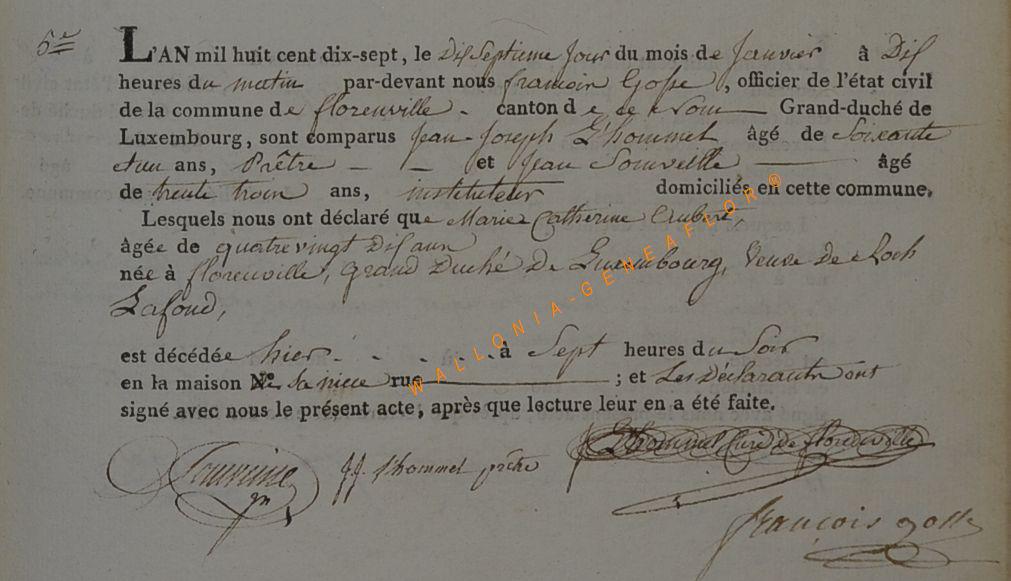 5e
L'AN mil huit cent dix-sept, le Dis Septieme Jour du mois de Janvier à Dis
heures du matin par-devant nous francois Gosse, officier de l'état civil
de la commune de florenville - canton d e ce Nom — Grand-duché de
Luxembourg, sont comparus Jean-Joseph L'hommel âgé de Soixante
et un ans, Prêtre - - et Jean — âgé
de trente trois ans, instituteur domiciliés en cette commune.
Lesquels nous ont déclaré que Marie Catherine
âgée de quatre vingt dis ans
née à florenville, Grand Duché de Luxembourg, Veuve de Roch
Lafond,
est décédée hier - - - - - à Sept heures du Soir
en la maison N° Sa niece rue — ; et Les Déclarants ont
signé avec nous le présent acte, après que lecture leur en a été faite.
J.J. l'hommel prêtre L'hommel Curé de florenville
françois gosse
WALLONIA-GENEAFLOR®